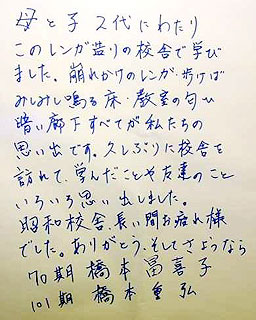 母と子 2代にわたり
このレンガ造りの校舎で学び
ました。崩れかけのレンガ・歩けば
みしみし鳴る床・教室の匂い
暗い廊下すべてが私たちの
思い出です。久しぶりに校舎を
訪れて、学んだことや友達のこと
いろいろ思い出しました。
昭和校舎、長い間お疲れ様
でした。ありがとう、そしてさようなら
70期 橋本冨喜子
101期 橋本重弘